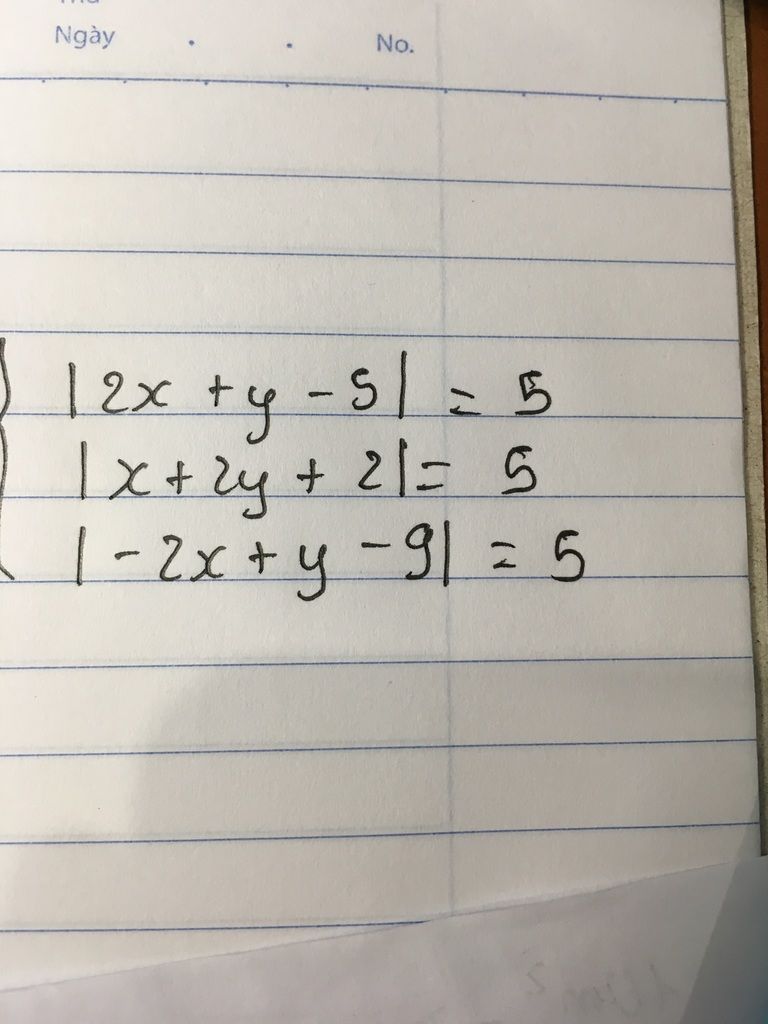 Thứ
Ngày . . No.
|2x + y - 5| = 5
|x + 2y + 2| = 5
|-2x + y - 9| = 5